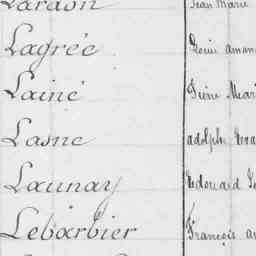 Lardon Jean Marie
Lagrée Louis
Lainé Pierre
Lasne adolphe
Launay Edouard
Lebarbier François